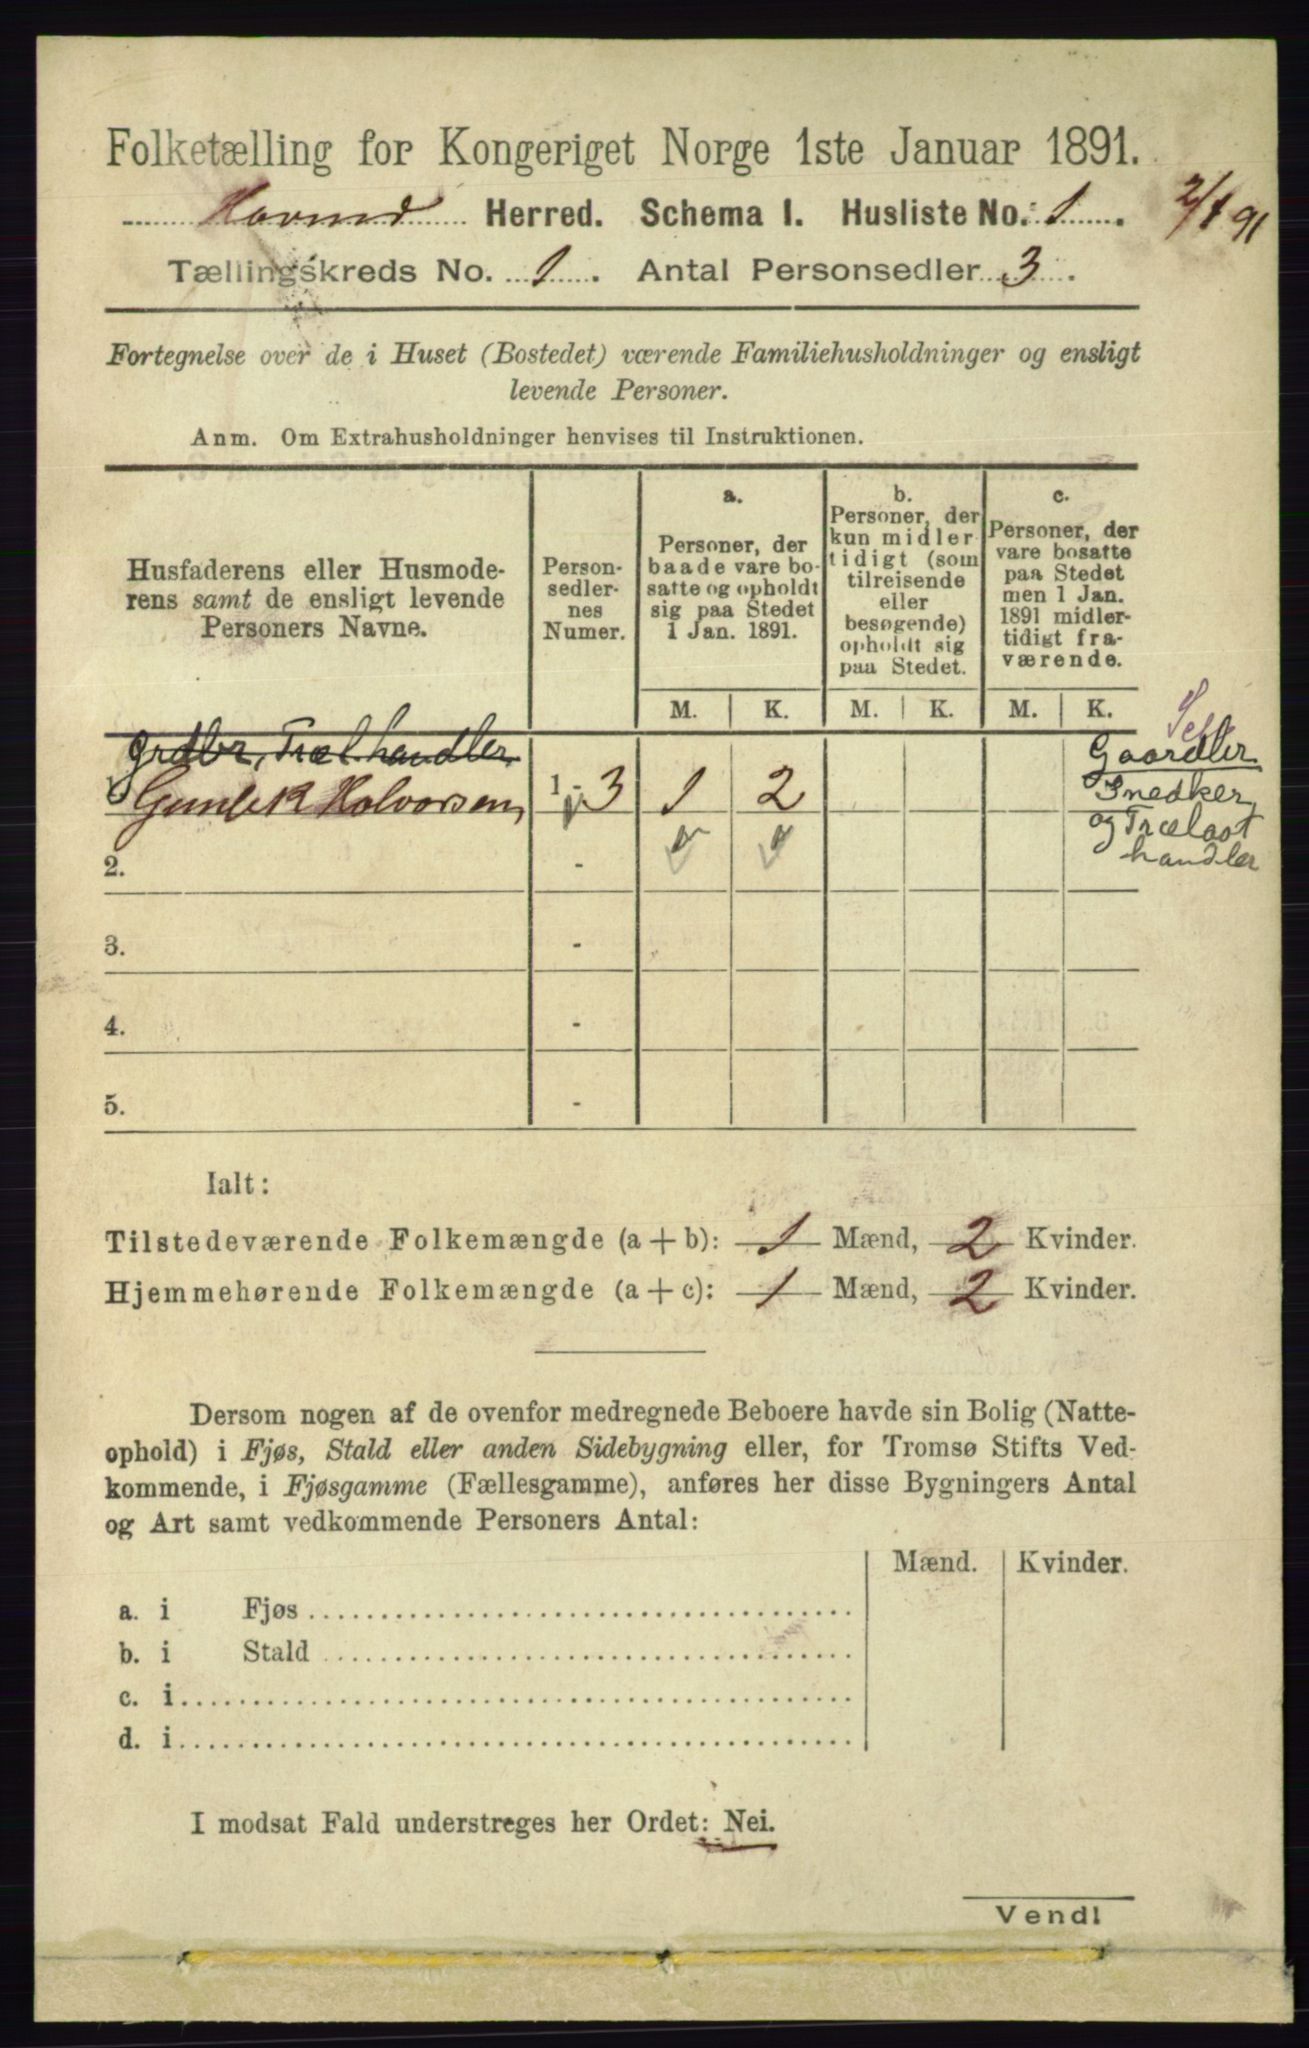 Folketælling for Kongeriget Norge 1ste Januar 1891.
Hovind Herred. Schema I. Husliste No. 1.
2/1 91
Tællingskreds No. 1. Antal Personsedler 3.
Fortegnelse over de i Huset (Bostedet) værende Familiehusholdninger og ensligt
levende Personer.
Anm. Om Extrahusholdninger henvises til Instruktionen.
Husfaderens eller Husmode-
rens samt de ensligt levende
Personers Navne.
Person-
sedler-
nes
Numer.
a.
Personer, der
baade vare bo-
satte og opholdt
sig paa Stedet
1 Jan. 1891.
b.
Personer, der
kun midler-
tidigt (som
tilreisende
eller
besøgende)
opholdt sig
paa Stedet.
c.
Personer, der
vare bosatte
paa Stedet
men 1 Jan.
1891 midler-
tidigt fra-
værende.
M. K. M. K. M. K.
Grdbr, Træl.handler
1. Gunlek Halvorsen 1 - 3 1 2
Gaardbr
Snedker
og Trælast
handler
2. -
3. -
4. -
5. -
Ialt:
Tilstedeværende Folkemængde (a + b): 1 Mænd, 2 Kvinder.
Hjemmehørende Folkemængde (a + c): 1 Mænd, 2 Kvinder.
Dersom nogen af de ovenfor medregnede Beboere havde sin Bolig (Natte-
ophold) i Fjøs, Stald eller anden Sidebygning eller, for Tromsø Stifts Ved-
kommende, i Fjøsgamme (Fællesgamme), anføres her disse Bygningers Antal
og Art samt vedkommende Personers Antal:
Mænd. Kvinder.
a. i Fjøs
b. i Stald
c. i
d. i
I modsat Fald understreges her Ordet: Nei.
Vend!